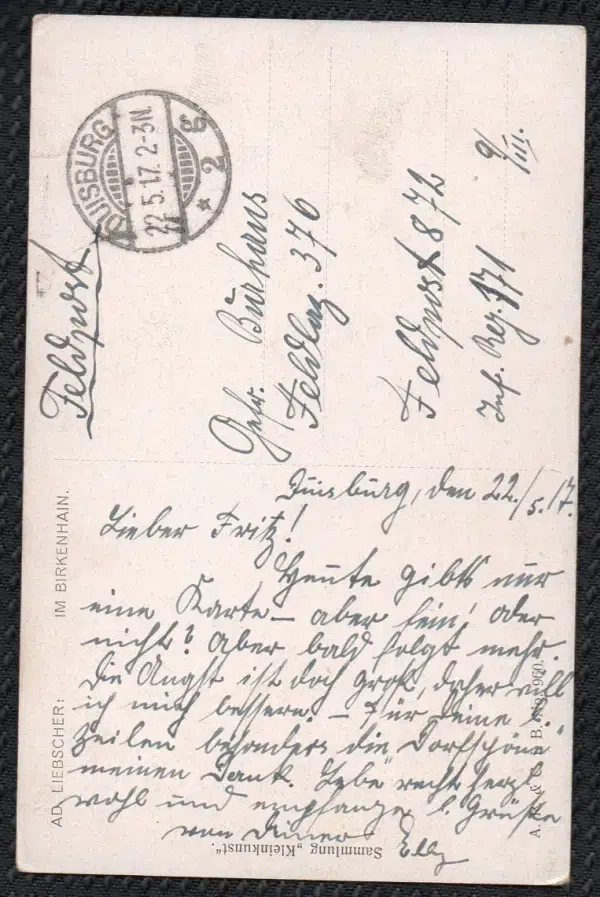 DUISBURG
22.5.17. 2-3N.
* 2 g.
Feldpost
Gefr. Burhans
Feldlaz. 376
Feldpost 872
Inf. Reg. 171
9/III.
Duisburg, den 22./5.17.
Lieber Fritz!
Heute gibts nur
eine Karte – aber fein! oder
nicht? Aber bald folgt mehr.
Die Angst ist doch groß, daher will
ich mich bessern. – Für Deine l.
Zeilen besonders die „Dorfschöne"
meinen Dank. Lebe recht herzl.
wohl und empfange l. Grüße
von Deiner Elly
AD. LIEBSCHER: IM BIRKENHAIN.
Sammlung „Kleinkunst".